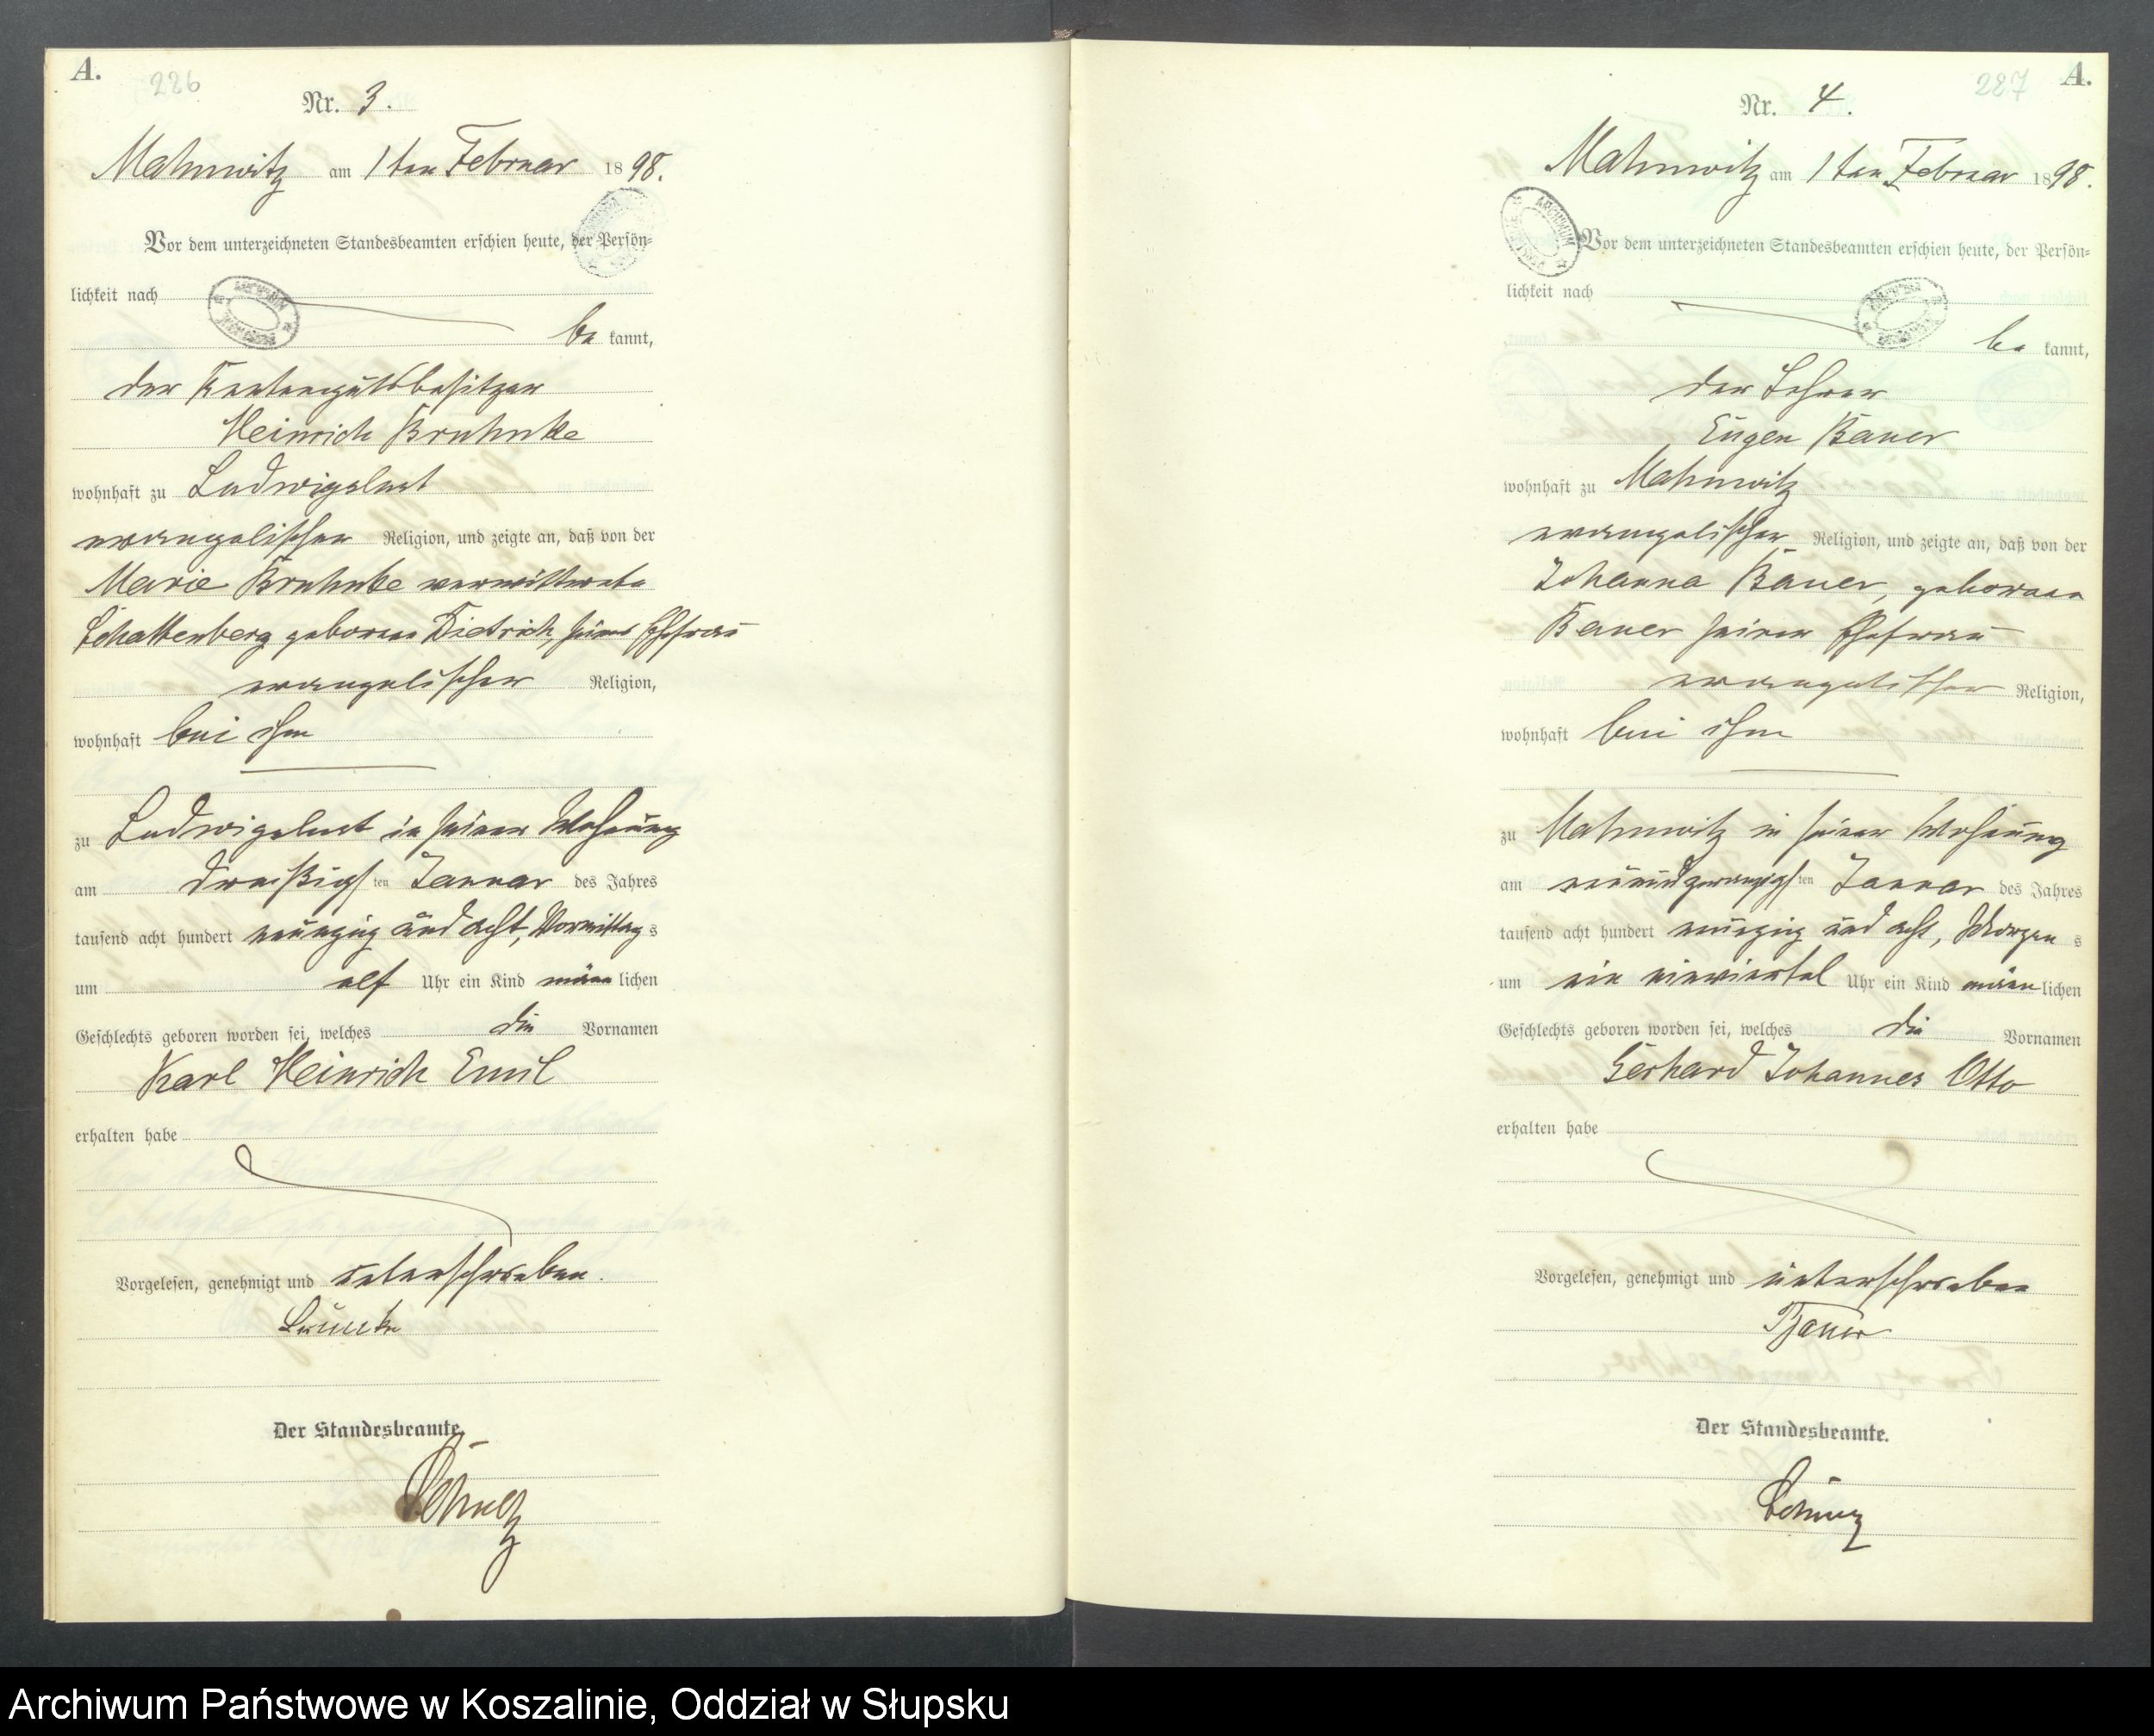 A.
226
Nr. 3.
Mahnwitz am 1ten Februar 1898.
Vor dem unterzeichneten Standesbeamten erschien heute, der Persön-
lichkeit nach
be kannt,
der Rentengutsbesitzer
Heinrich Bruhnke
wohnhaft zu Ludwigslust
evangelischer Religion, und zeigte an, daß von der
Marie Bruhnke verwittwete
Schattenberg geborene Dietrich, seiner Ehefrau
evangelischer Religion,
wohnhaft bei ihm
zu Ludwigslust in seiner Wohnung
am dreißigsten Januar des Jahres
tausend acht hundert neunzig und acht, Vormittags
um elf Uhr ein Kind männlichen
Geschlechts geboren worden sei, welches die Vornamen
Karl Heinrich Emil
erhalten habe
Vorgelesen, genehmigt und unterschrieben.
Der Standesbeamte.
227
A.
Nr. 4.
Mahnwitz am 1ten Februar 1898.
Vor dem unterzeichneten Standesbeamten erschien heute, der Persön-
lichkeit nach
be kannt,
der Lehrer
Eugen Bauer
wohnhaft zu Mahnwitz
evangelischer Religion, und zeigte an, daß von der
Johanna Bauer, geborene
Bauer seiner Ehefrau
evangelischer Religion,
wohnhaft bei ihm
zu Mahnwitz in seiner Wohnung
am neunundzwanzigsten Januar des Jahres
tausend acht hundert neunzig und acht, Morgens
um ein einviertel Uhr ein Kind männlichen
Geschlechts geboren worden sei, welches die Vornamen
Gerhard Johannes Otto
erhalten habe
Vorgelesen, genehmigt und unterschrieben
Bauer
Der Standesbeamte.
Archiwum Państwowe w Koszalinie, Oddział w Słupsku